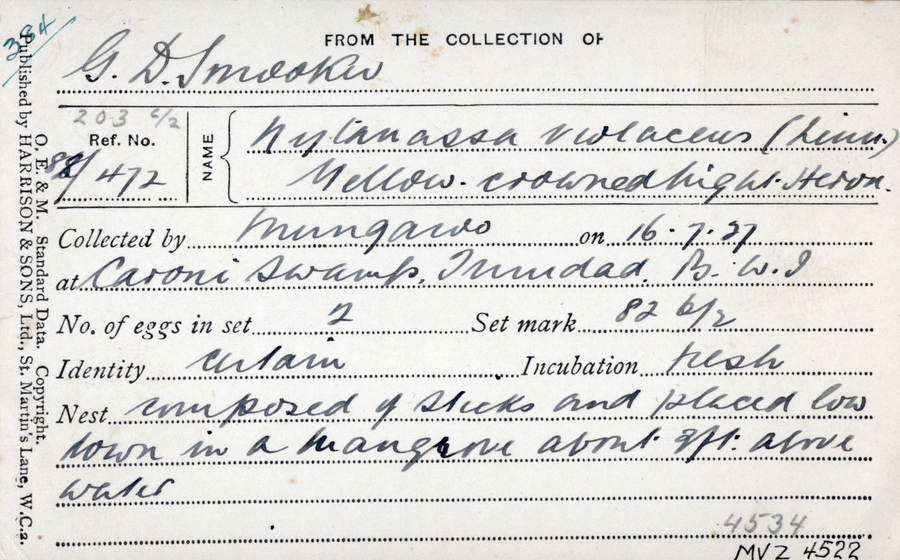 384
FROM THE COLLECTION OF
G. D. Smooker
203 c/2
Ref. No.
82/472
NAME
Nyctanassa violaceus (Linn.)
Yellow-crowned Night-Heron.
Collected by Mungaroo on 16.7.37
at Caroni Swamp, Trinidad. B.W.I
No. of eggs in set 2 Set mark 82 b/2
Identity certain Incubation fresh
Nest composed of sticks and placed low
down in a mangrove about 3ft. above
water
4534
MVZ 4522
O. E. & M. Standard Data. Copyright.
Published by HARRISON & SONS, Ltd., St. Martin's Lane, W.C.2.